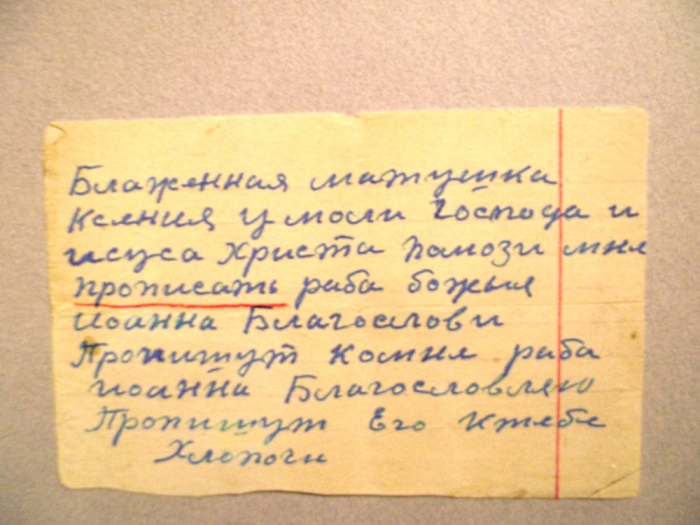 Блаженная матушка
Ксения умоли Господа и
исуса Христа Памози мне
прописать раба божья
иоанна Благослови
Пропишут комне раба
иоанна Благословляю
Пропишут Его Ктебе
Хлопочи